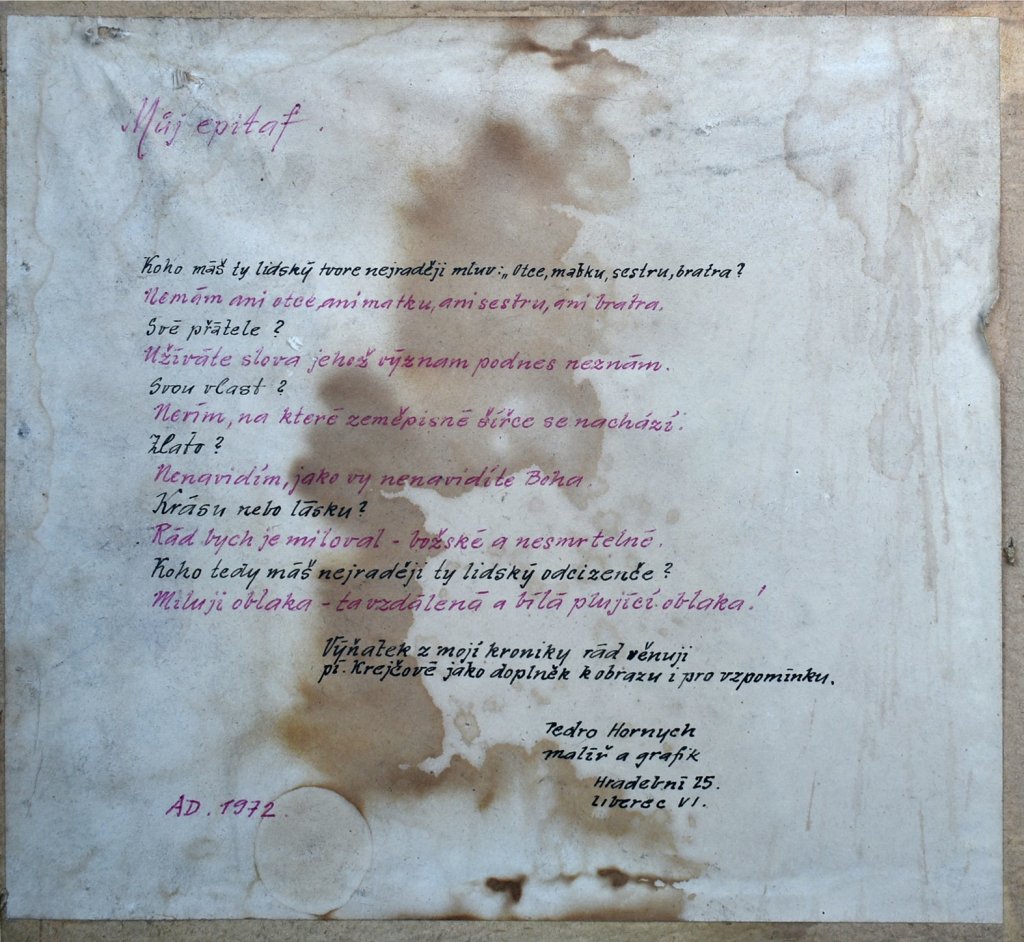 Můj epitaf.
Koho máš ty lidský tvore nejraději mluv:„ Otce, matku, sestru, bratra?
Nemám ani otce, ani matku, ani sestru, ani bratra.
Své přátele ?
Užíváte slova jehož význam podnes neznám.
Svou vlast ?
Nevím, na které zeměpisné šířce se nachází.
Zlato ?
Nenavidím, jako vy nenavidíte Boha.
Krásu nebo lásku?
Rád bych je miloval - božské a nesmrtelné.
Koho tedy máš nejraději ty lidský odcizenče ?
Miluji oblaka - ta vzdálená a bílá plující oblaka!
Výňatek z mojí kroniky rád věnuji
pí. Krejčové jako doplněk k obrazu i pro vzpomínku.
Pedro Hornych
malíř a grafik
Hradební 25.
Liberec VI.
AD. 1972.